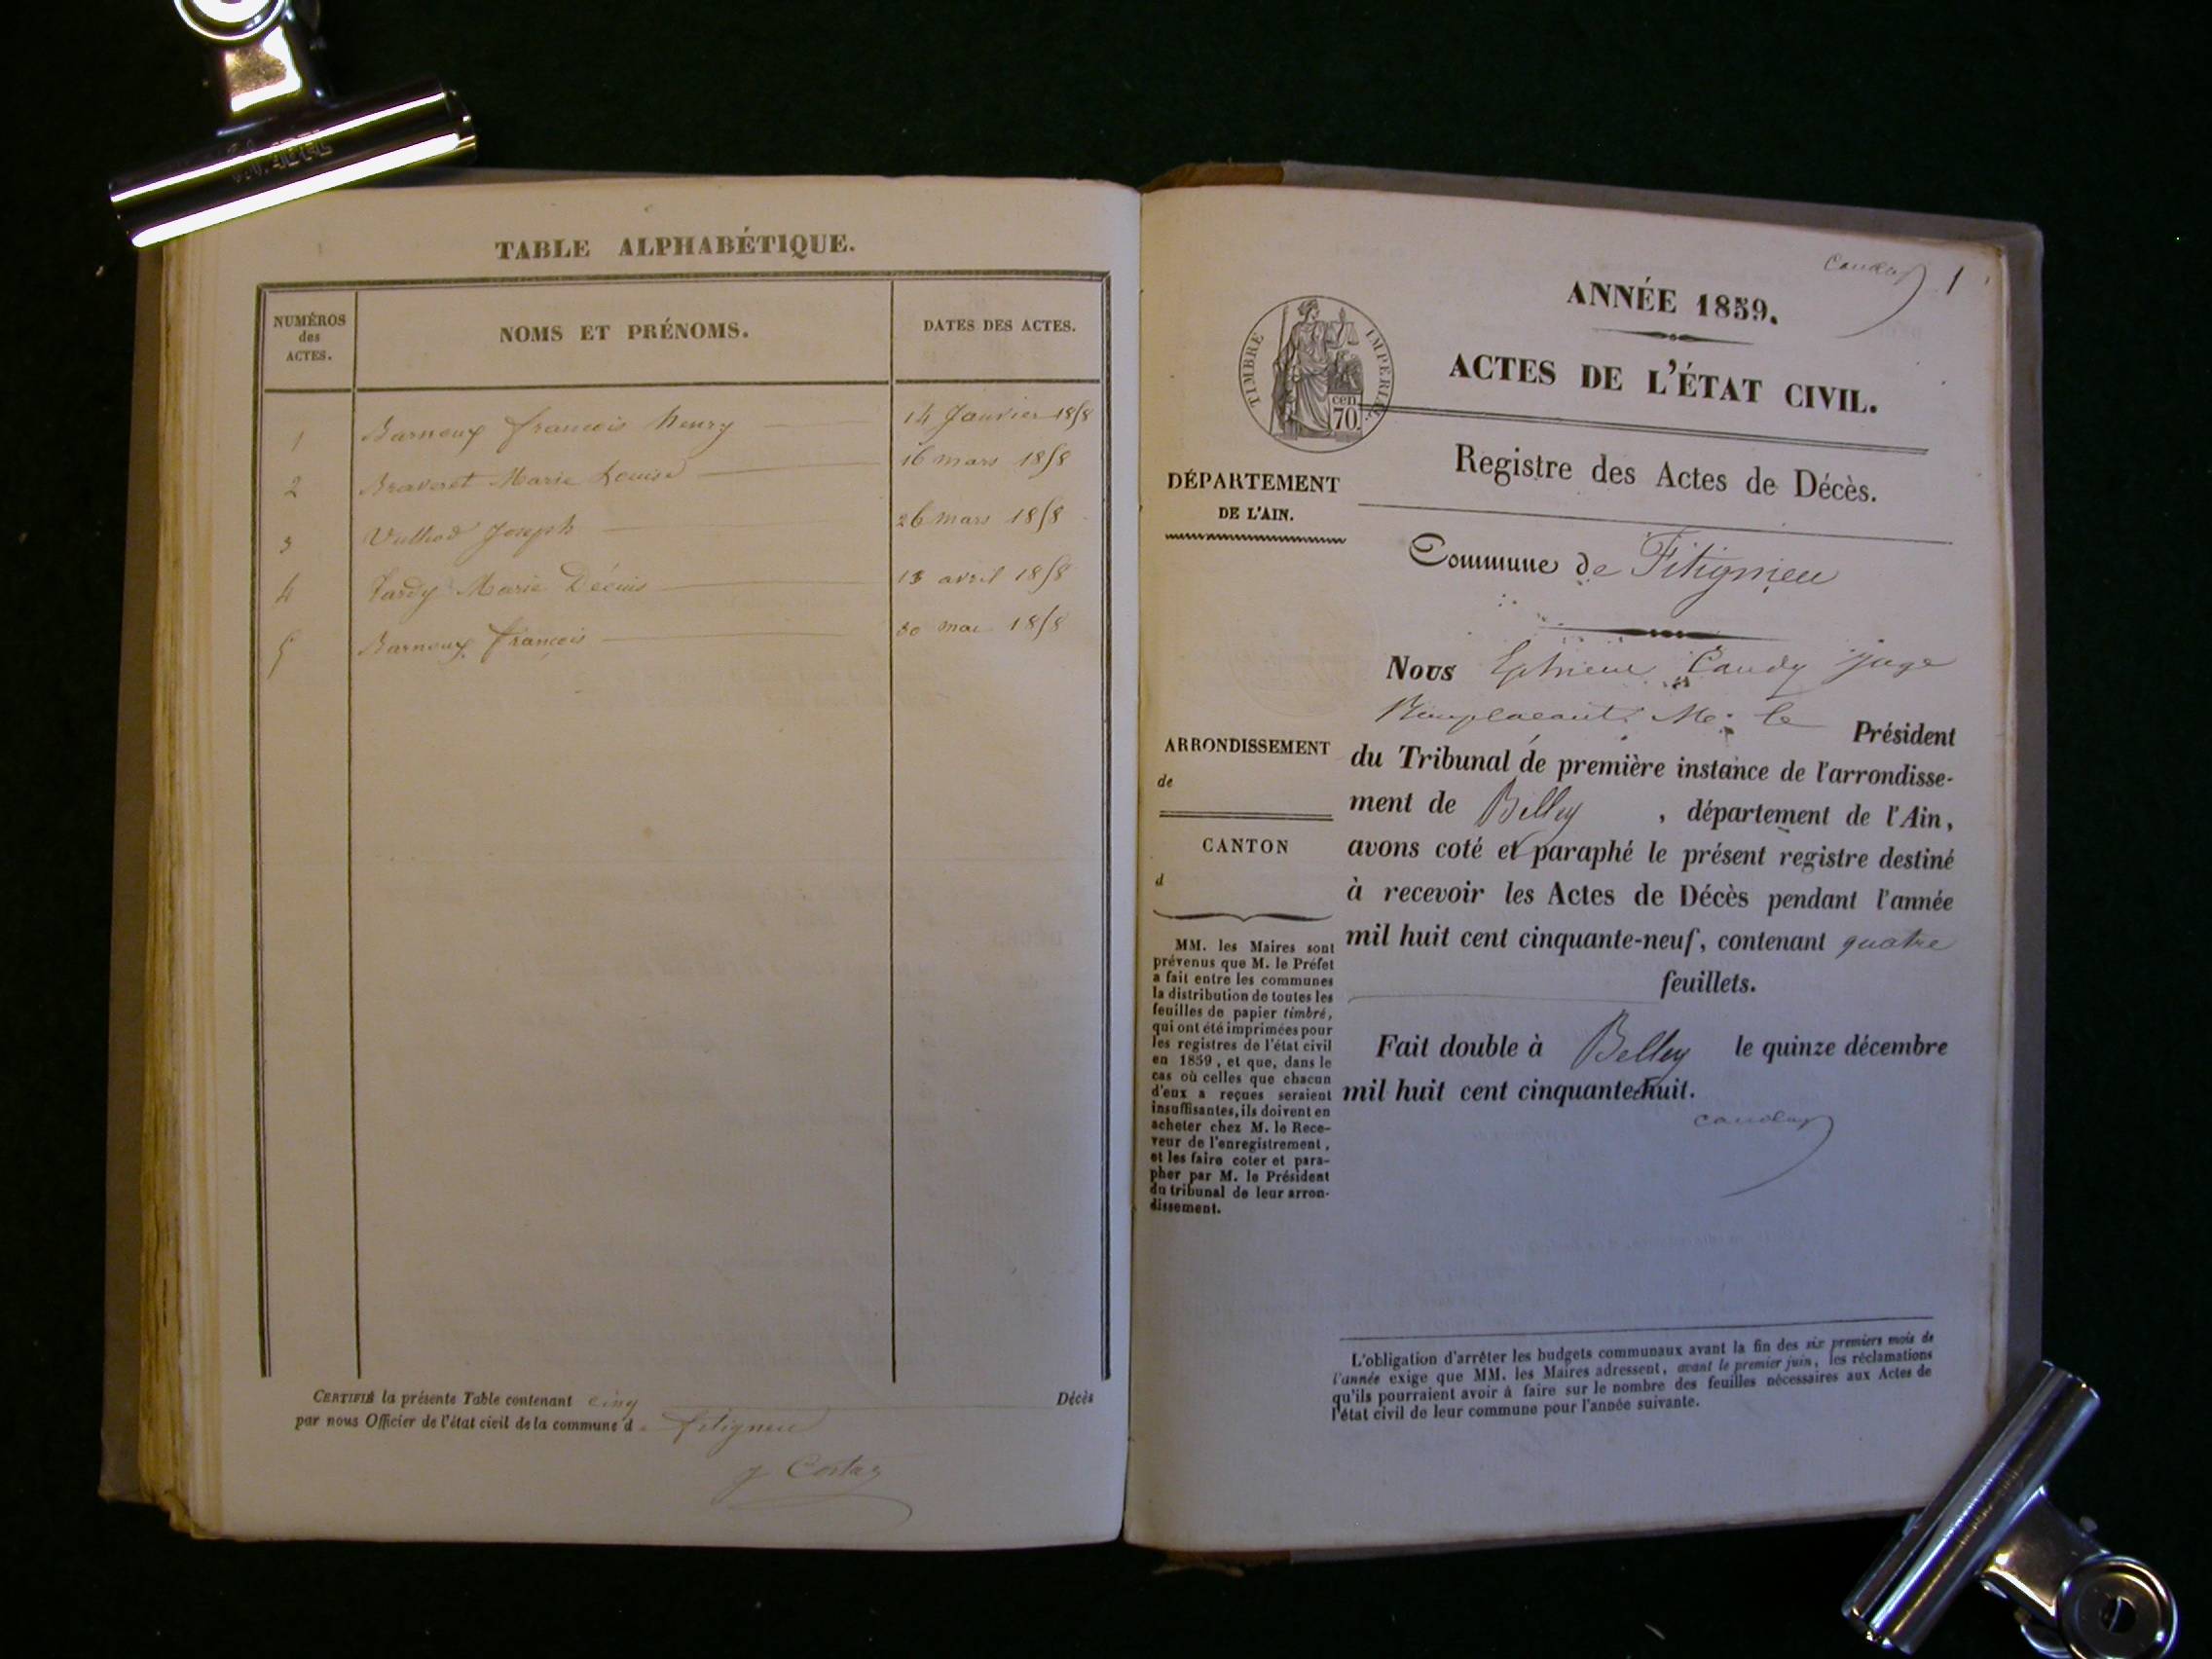 TABLE ALPHABÉTIQUE.
NUMÉROS
des
ACTES.
NOMS ET PRÉNOMS.
DATES DES ACTES.
1 Barnoux françois henry 14 Janvier 1858
2 Braveret Marie Louise 16 mars 1858
3 Vulliod Joseph 26 mars 1858
4 Tardy Marie 13 avril 1858
5 Barnoux françois 30 mai 1858
CERTIFIÉ la présente Table contenant cinq Décès
par nous Officier de l'état civil de la commune de fitignieu
J Costaz
Caudy 1
ANNÉE 1859.
ACTES DE L'ÉTAT CIVIL.
TIMBRE IMPERIAL
cen
70.
Registre des Actes de Décès.
DÉPARTEMENT
DE L'AIN.
Commune de Fitignieu
Nous Caudy juge
Remplaçant Mr. le Président
du Tribunal de première instance de l'arrondisse-
ment de Belley , département de l'Ain,
avons coté et paraphé le présent registre destiné
à recevoir les Actes de Décès pendant l'année
mil huit cent cinquante-neuf, contenant quatre
feuillets.
Fait double à Belley le quinze décembre
mil huit cent cinquante-huit.
Caudy
ARRONDISSEMENT
de
CANTON
d
MM. les Maires sont
prévenus que M. le Préfet
a fait entre les communes
la distribution de toutes les
feuilles de papier timbré,
qui ont été imprimées pour
les registres de l'état civil
en 1859, et que, dans le
cas où celles que chacun
d'eux a reçues seraient
insuffisantes, ils doivent en
acheter chez M. le Rece-
veur de l'enregistrement,
et les faire coter et para-
pher par M. le Président
du tribunal de leur arron-
dissement.
L'obligation d'arrêter les budgets communaux avant la fin des six premiers mois de
l'année exige que MM. les Maires adressent, avant le premier juin, les réclamations
qu'ils pourraient avoir à faire sur le nombre des feuilles nécessaires aux Actes de
l'état civil de leur commune pour l'année suivante.